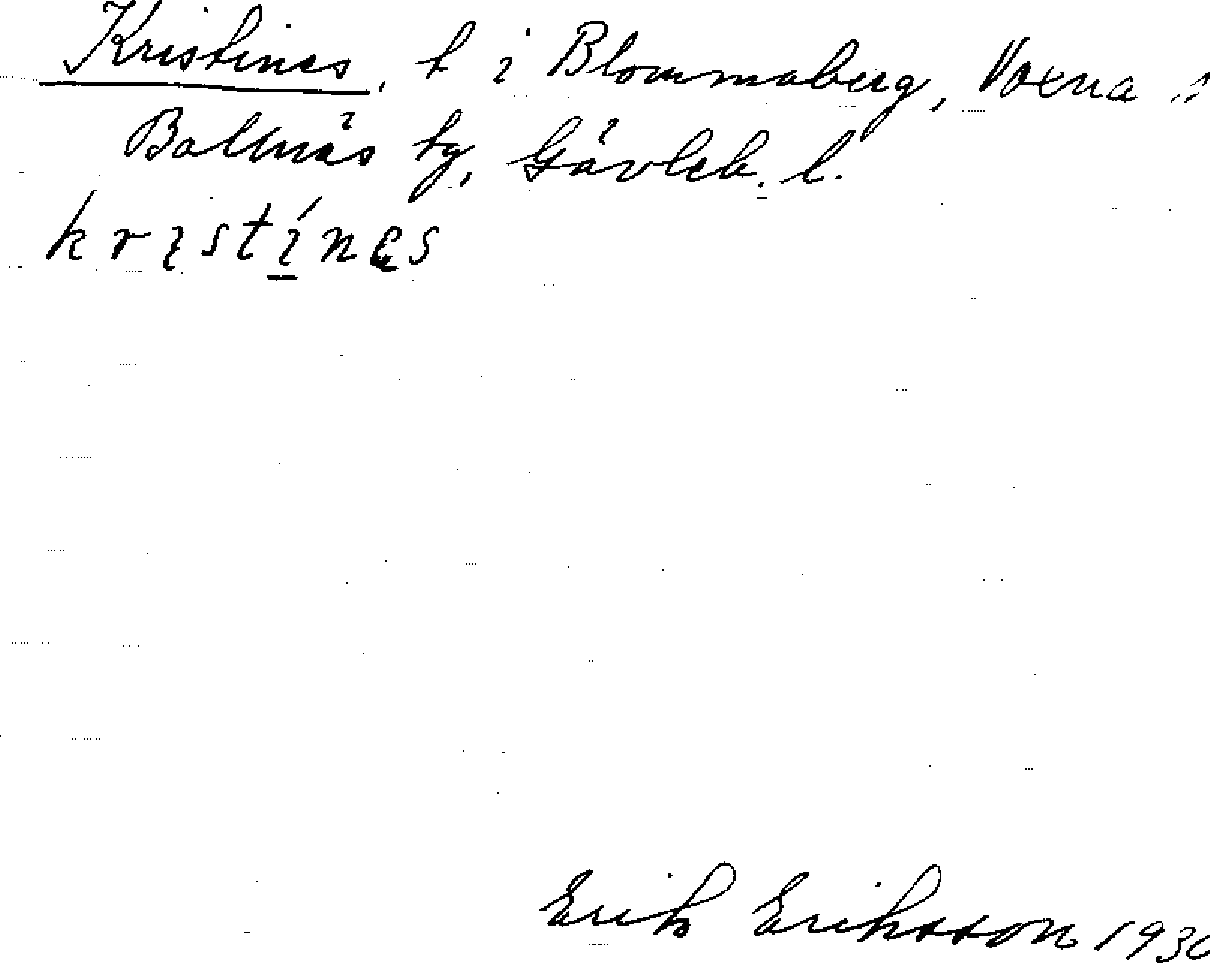 Kristines, t i Blommaberg, Voxna s
Bollnäs tg, Gävleb. l.
kristínes
Erik Eriksson 1930